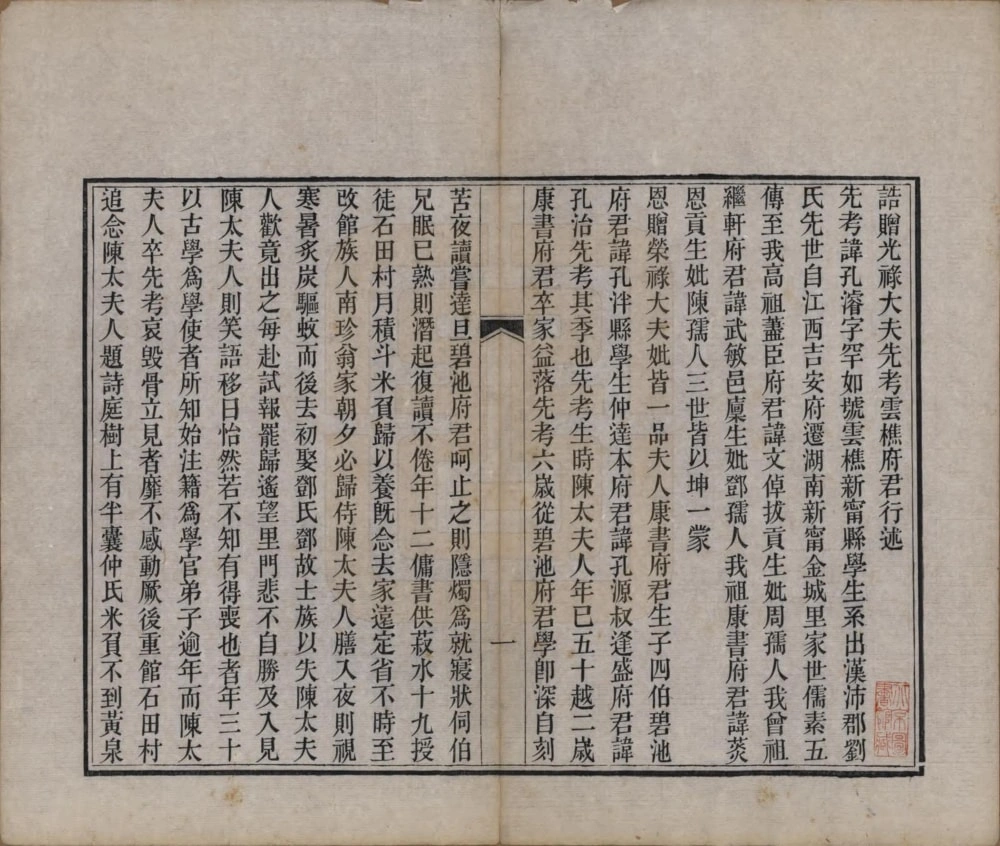 誥贈光祿大夫先考雲樵府君行述
先考諱孔濬字罕如號雲樵新甯縣學生系出漢沛郡劉
氏先世自江西吉安府遷湖南新甯金城里家世儒素五
傳至我高祖藎臣府君諱文倬拔貢生妣周孺人我曾祖
繼軒府君諱武敏邑廩生妣鄧孺人我祖康書府君諱荧
恩貢生妣陳孺人三世皆以坤一蒙
恩贈榮祿大夫妣皆一品夫人康書府君生子四伯碧池
府君諱孔泮縣學生仲達本府君諱孔源叔逢盛府君諱
孔治先考其季也先考生時陳太夫人年已五十越二歲
康書府君卒家益落先考六歲從碧池府君學卽深自刻
一
苦夜讀嘗達旦碧池府君呵止之則隱燭爲就寢狀伺伯
兄眠已熟則潛起復讀不倦年十二傭書供菽水十九授
徒石田村月積斗米負歸以養旣念去家遠定省不時至
改館族人南珍翁家朝夕必歸侍陳太夫人膳入夜則視
寒暑炙炭驅蚊而後去初娶鄧氏鄧故士族以失陳太夫
人歡竟出之每赴試報罷歸遙望里門悲不自勝及入見
陳太夫人則笑語移日怡然若不知有得喪也者年三十
以古學爲學使者所知始注籍爲學官弟子逾年而陳太
夫人卒先考哀毀骨立見者靡不感動厥後重館石田村
追念陳太夫人題詩庭樹上有半囊仲氏米負不到黃泉